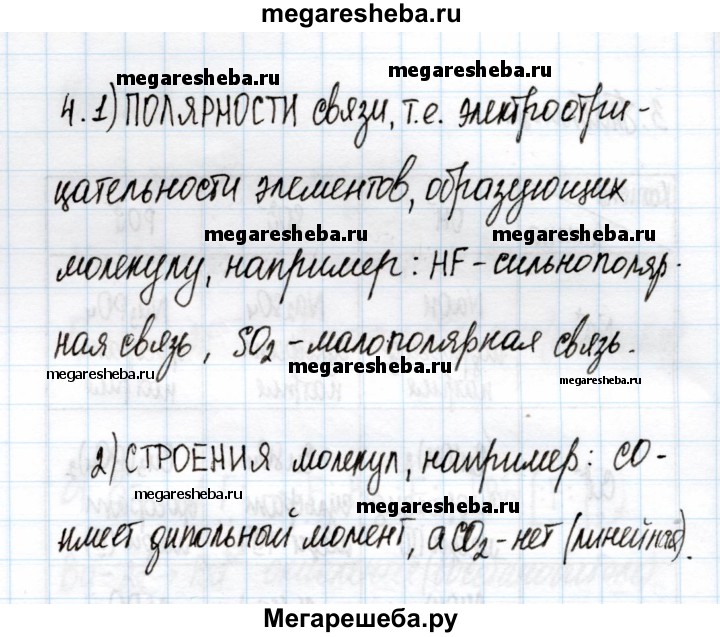 megaresheba.ru
megaresheba.ru megaresheba.ru
4.1) ПОЛЯРНОСТИ связи, т.е. электроотри-
цательности элементов, образующих
megaresheba.ru megaresheba.ru
молекулу, например: HF-сильнополяр-
ная связь, SO2-малополярная связь.
megaresheba.ru megaresheba.ru megaresheba.ru
2) СТРОЕНИЯ молекул, например: CO-
megaresheba.ru megaresheba.ru
имеет дипольный момент, а CO2-нет (линейная).
Мегарешеба.ру